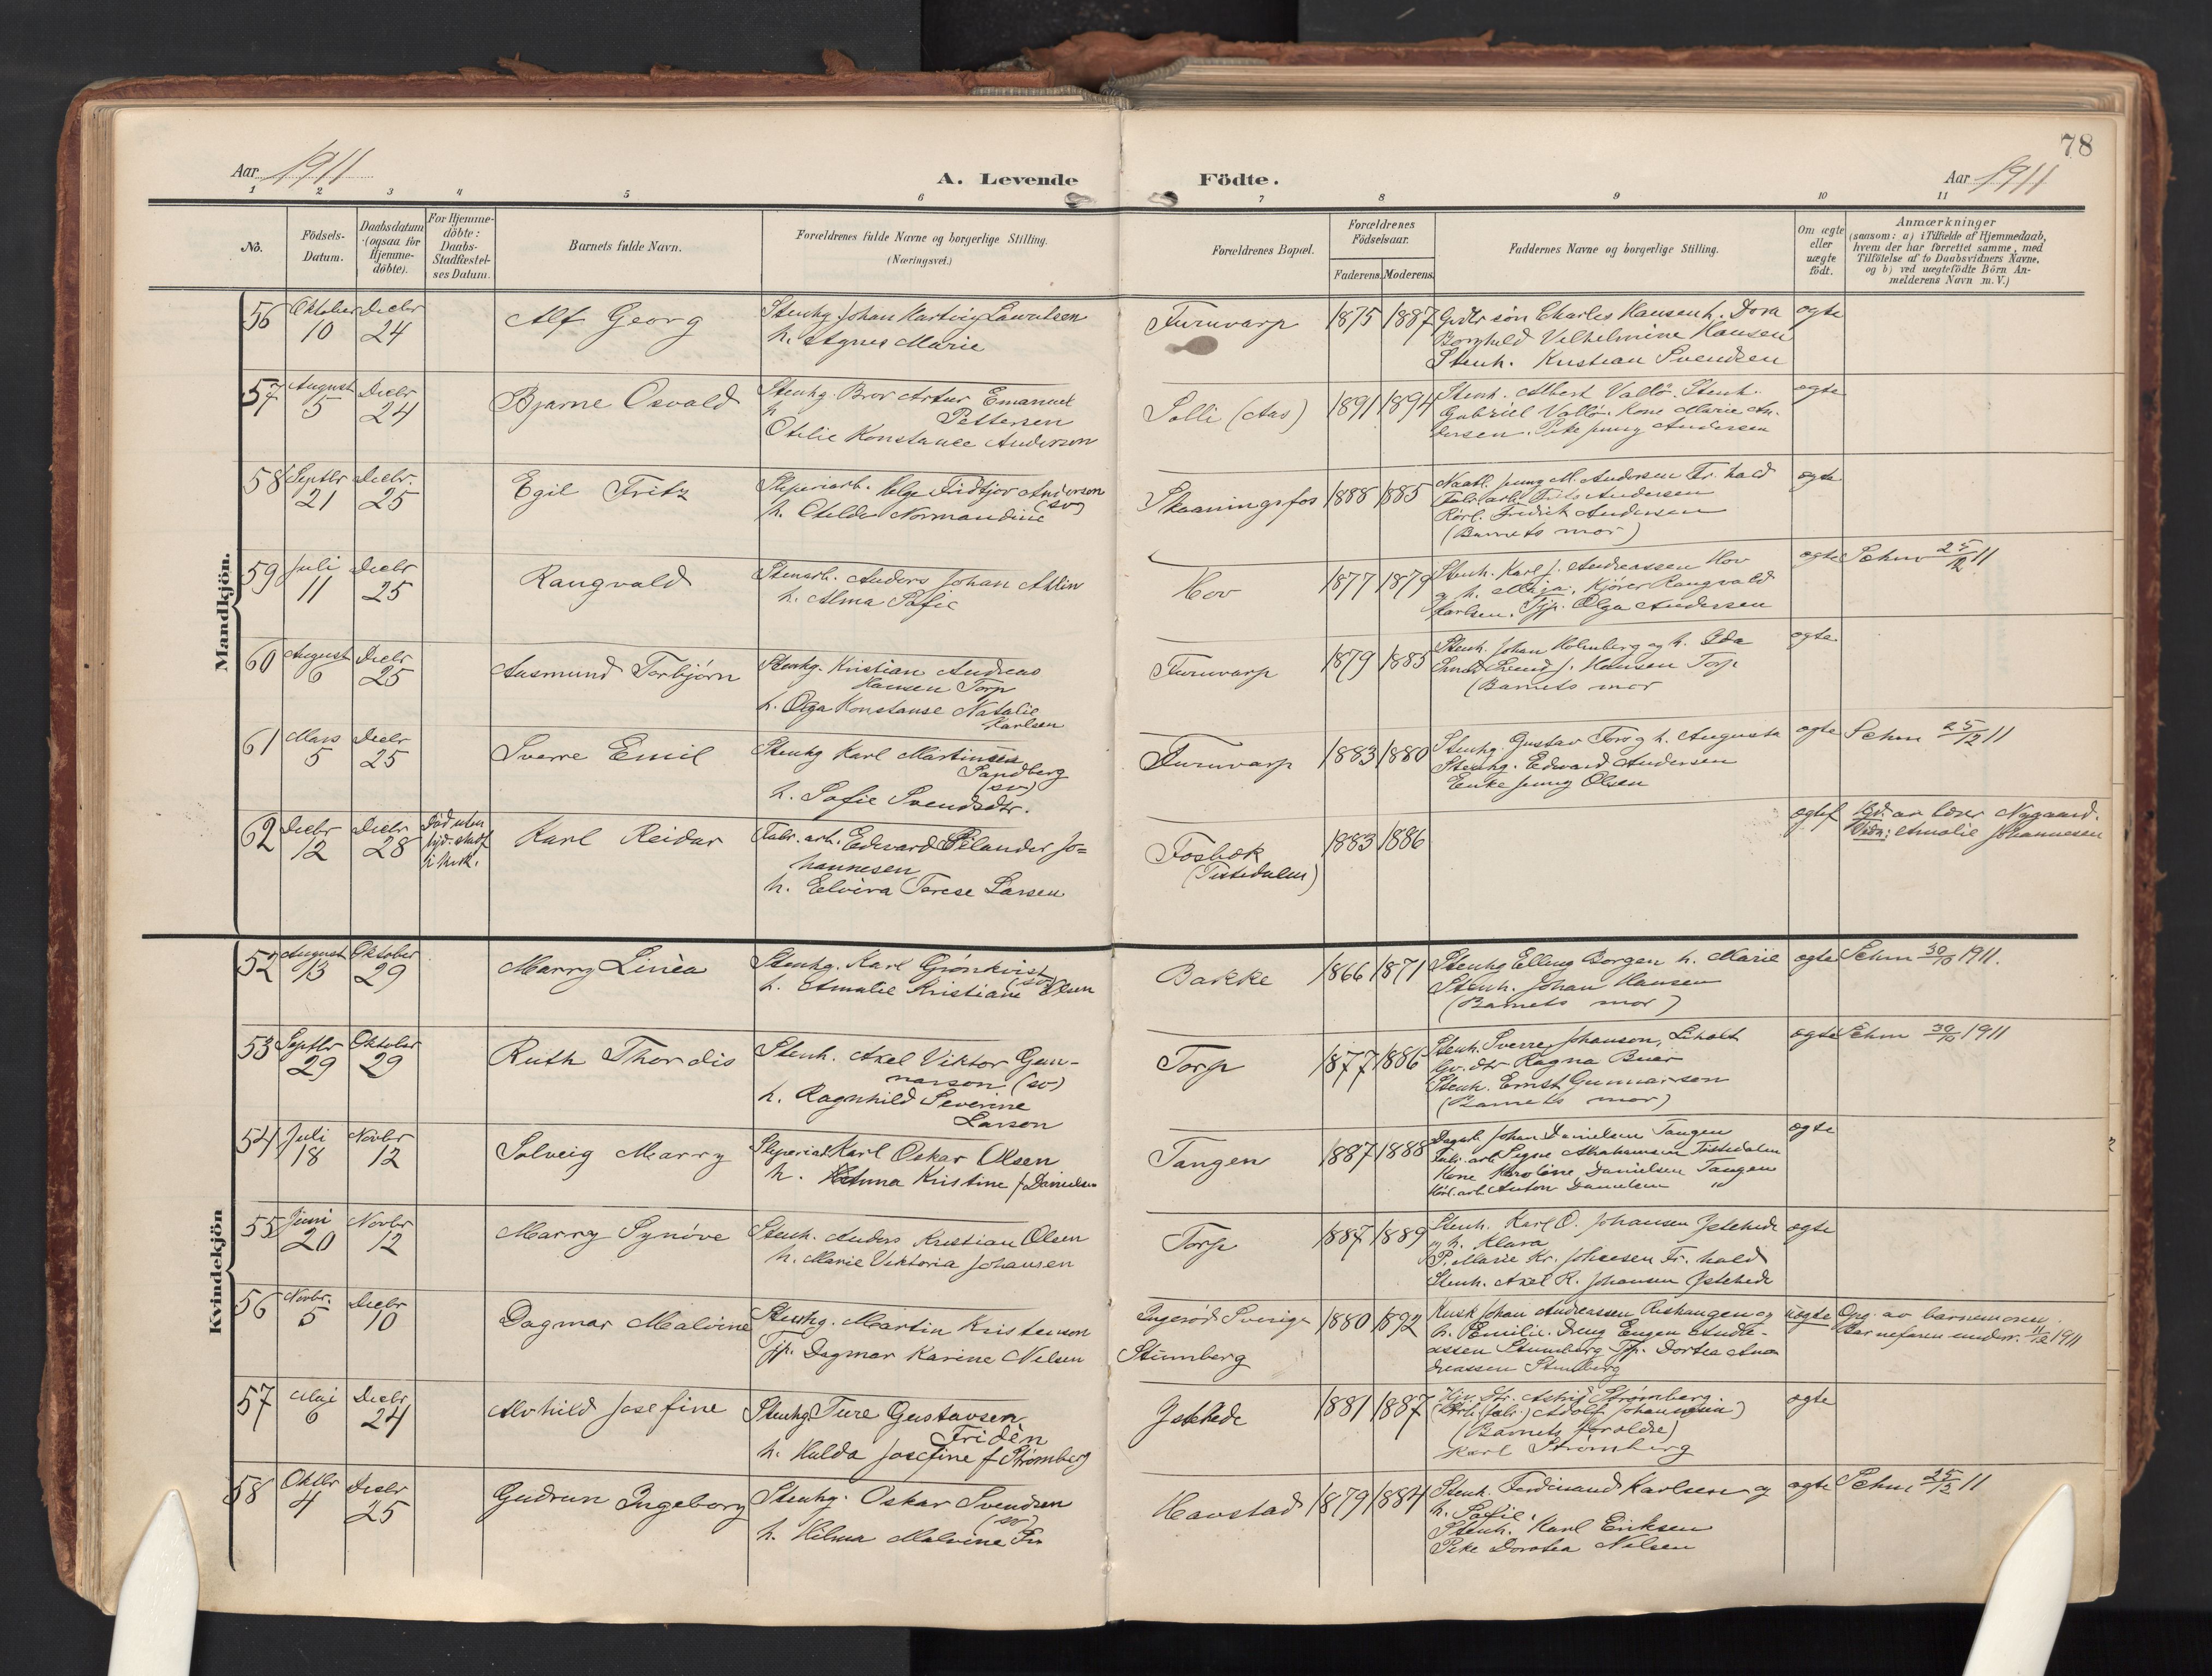 78
Aar 1911
A. Levende Födte.
Aar 1911
1 2 3 4 5 6 7 8 9 10 11
No.
Födsels-Datum.
Daabsdatum (ogsaa for Hjemmedöbte).
For Hjemmedöbte: Daabs-Stadfæstelses Datum.
Barnets fulde Navn.
Forældrenes fulde Navne og borgerlige Stilling.
(Næringsvei.)
Forældrenes Bopæl.
Forældrenes Födselsaar.
Faderens. Moderens.
Faddernes Navne og borgerlige Stilling.
Om ægte eller uægte födt.
Anmærkninger
(saasom: a) i Tilfælde af Hjemmedaab,
hvem der har forrettet samme, med
Tilföielse af to Daabsvidners Navne,
og b) ved uægtefödte Börn An-
melderens Navn m. V.)
Mandkjön.
56 Oktober 10 Decbr 24
Alf Georg
Stenhg. Johan Hartvig Lauritsen
h. Agnes Marie
Furuvarp 1875 1887
Gvdbr sön Charles Hansen h. Dora
Borghild Vilhelmine Hansen
Stenh. Kristian Svendsen
ægte
57 August 5 Decbr 24
Bjarne Osvald
Stenhg. Bror Artur Emanuel
h Pettersen
Otilie Konstance Anderson
Solli (Aas) 1891 1894
Stenh. Albert Vallö. Stenh.
Gabriel Vallö. Kone Marie An-
dersen. Pike Jenny Andersen
ægte
58 Septbr 21 Decbr. 25
Egil Fritz
Sliperiarb. Helge Fridtjov Anderson
(sv)
h. Otilde Normandine
Skaaningsfos 1888 1885
Jenny M. Andersen Fr.hald
Fabr. arb. Andersen
Andersen
(Barnets mor)
ægte
59 Juli 11 Decbr 25
Rangvald
Stenarb. Anders Johan Ahlin
h. Alma Sofie
Hov 1877 1879
Stenh. Karl J. Andreassen Hov
og h. Maja. Kjörer Rangvald
Karlsen. Tjp. Olga Andersen
ægte Sehm 25/12 11
60 August 6 Decbr 25
Aasmund Torbjörn
Stenhg. Kristian Andreas
Hansen Torp
h. Olga Konstanse Natalie
Karlsen
Furuvarp 1879 1885
Stenh. Johan Holmberg og h. Ida
J. Hansen Torp
(Barnets mor
ægte
61 Mars 5 Decbr 25
Sverre Emil
Stenhg Karl Martinsen
Sandberg
(sv)
h. Sofie Svendsdtr.
Furuvarp 1883 1880
Stenhg. Gustav Toro og h. Augusta
Stenhg. Edvard Andersen
Enke Jenny Olsen
ægte Sehm 25/12 11
62 Decbr 12 Decbr 28
Död uten
stadf.
i kirk.
Karl Reidar
Fabr. arb. Edvard Pilander Jo=
hannesen
h. Elvira Terese Larsen
Fosbæk
(Tistedalen)
1883 1886
ægtef Hjd. av lærer Nygaard.
Vidn: Amalie Johannesen
Kvindekjön
52 August 13 Oktober 29
Marry Linèa
Stenhg. Karl Grönkvist
(sv)
h. Amalie Kristiane Olsen
Bakke 1866 1871
Stenhg Elling Borgen h. Marie
Stenh. Johan Hansen
(Barnets mor)
ægte Sehm 30/10 1911.
53 Septbr 29 Oktober 29
Ruth Thordis
Stenh. Axel Viktor Gun-
narson (sv)
h. Ragnhild Severine
Larson
Torp 1877 1886
Stenh. Sverre Johanson, Liholt
Gv.dtr Ragna Buer
Stenh. Ernst Gunnarsen
(Barnets mor)
ægte Sehm 30/10 1911
54 Juli 18 Novbr 12
Solveig Marry
Sliperiarb Karl Oskar Olsen
h. Anna Kristine f Danielsen
Tangen 1887 1888
Dagarb. Johan Danielsen Tangen
Fabr. arb Signe Abrahamsen Tistedalen
Kone Karoline Danielsen Tangen
arb Anton Danielsen "
ægte
55 Juni 20 Novbr 12
Marry Synöve
Stenh. Anders Kristian Olsen
h. Marie Viktoria Johansen
Torp 1887 1889
Stenh. Karl O. Johansen Istehede
og h. Klara
P. Marie Kr. Johansen Fr. hald
Stenh. Axel R. Johansen Istehede
ægte
56 Novbr. 5 Decbr 10
Dagmar Malvine
Stenhg. Martin Kristenson
Tjp. Dagmar Karine Nelsen
Ingeröd Sverige
Stumberg
1880 1892
Kusk Johan Andreassen Rishaugen og
h. Emilie. Dreng Eugen Andre-
assen Stumberg Tjp. Dortea An-
dreassen Stumberg
uægte Opg. av barnemoren.
Barnefaren underr. 11/12 1911
57 Mai 6 Decbr 24
Alvhild Josefine
Stenhg Ture Gustavsen
Fridèn
h. Hulda Josefine f Strömberg
Istehede 1881 1887
Astrid Strömberg.
Adolf Johannesen)
(Barnets forældre)
Karl Strömberg
ægte
58 Oktbr 4 Decbr 25
Gudrun Ingeborg
Stenhg. Oskar Svendsen
(sv)
h. Hilma Malvine
Havstad 1879 1884
Stenh. Ferdinand Karlsen og
h. Sofie.
Stenh. Karl Eriksen
Pike Dorotea Nilsen
ægte Sehm 25/12 11